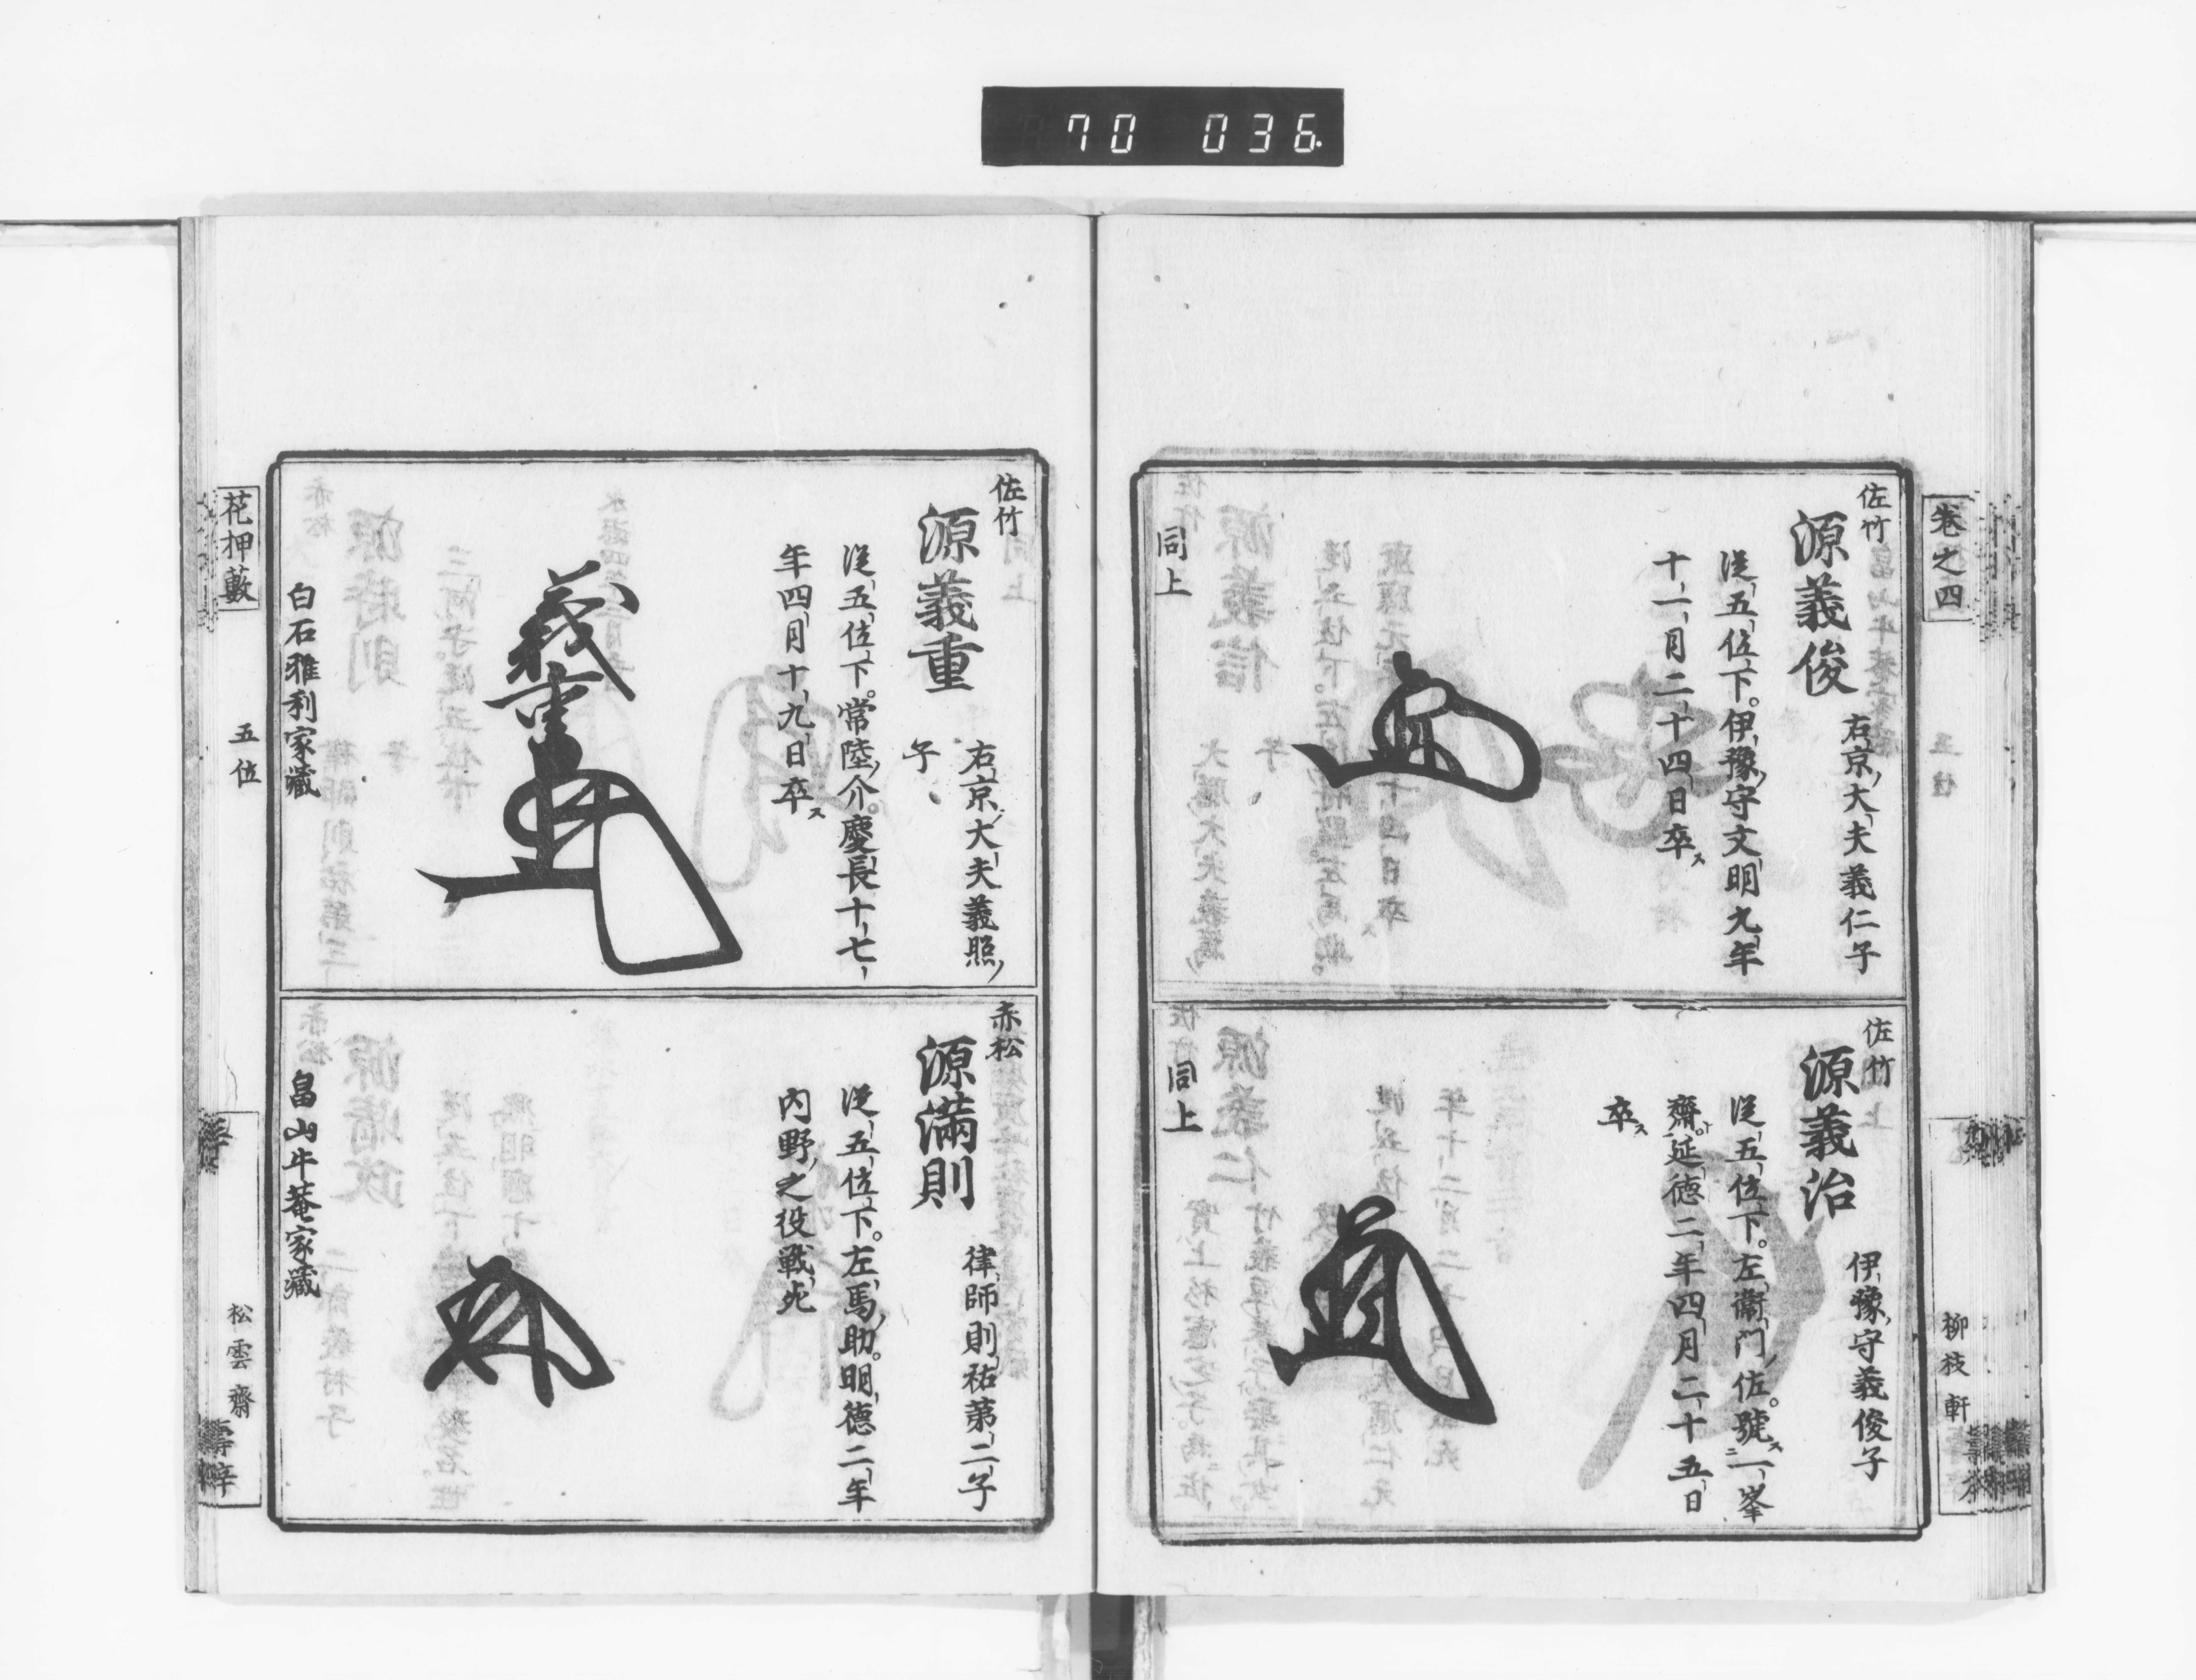 70 036
卷之四
柳枝軒
佐竹
源義俊
右京大夫義仁子
従五位下。伊豫守文明九年
十一月二十四日卒ス
同上
佐竹
源義治
伊豫守義俊子
従五位下。左衞門佐。號ス一峯
齋ト延德二年四月二十五日
卒ス
同上
佐竹
源義重
右京大夫義照
子
従五位下。常陸介。慶長十七
年四月十九日卒ス
義重
白石雅利家藏
赤松
源滿則
律師則祐第二子
従五位下。左馬助。明德二年
内野之役戰死
畠山牛菴家藏
花押藪
五位
松雲齋